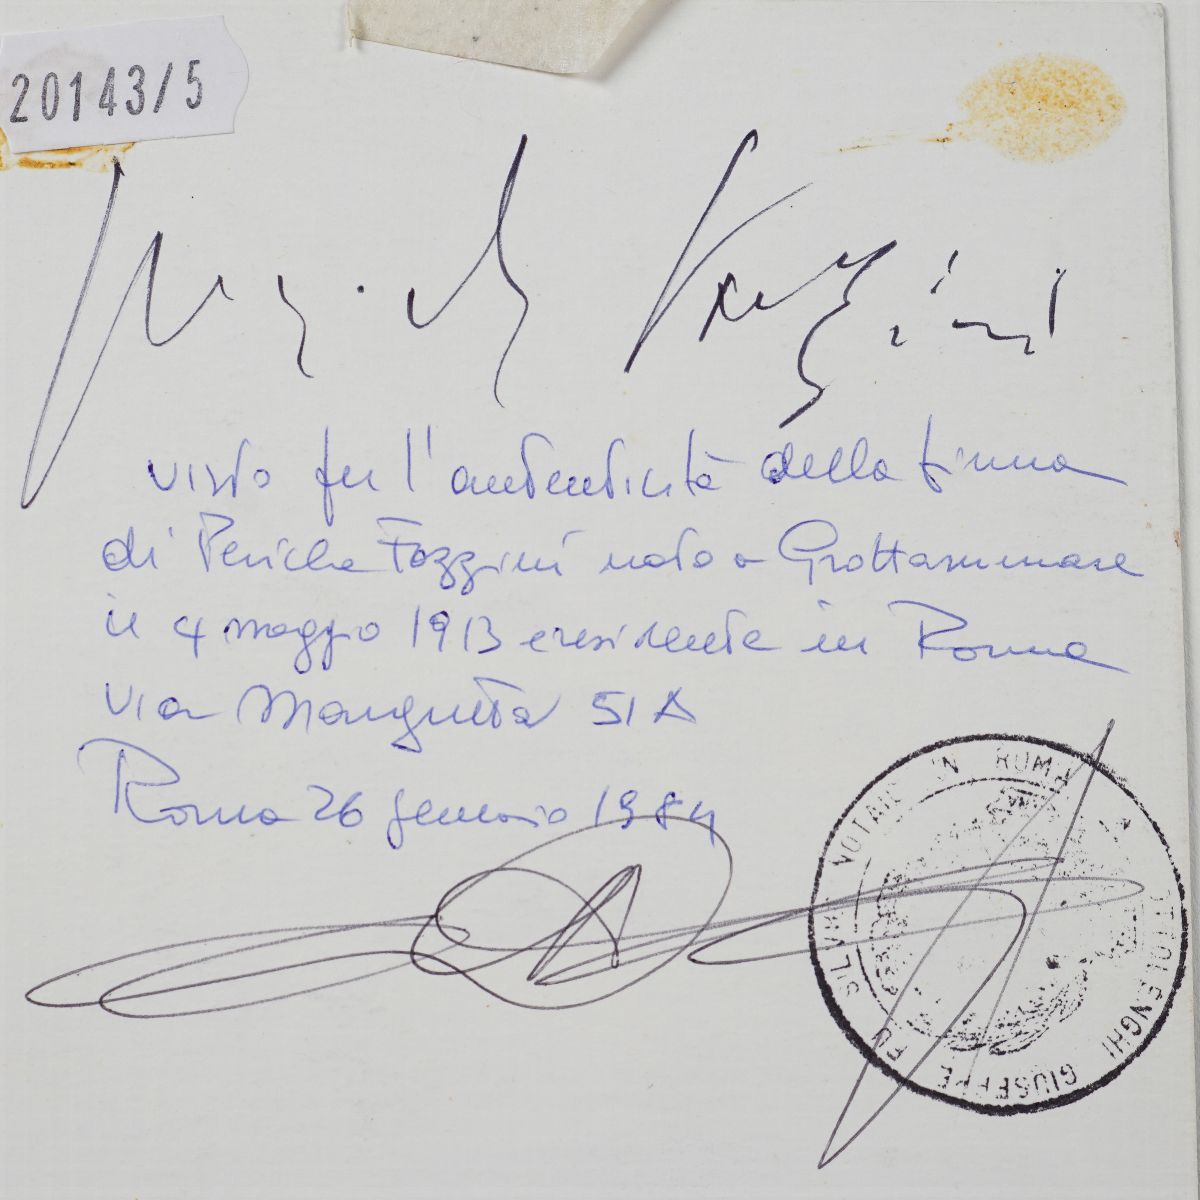 20143/5
Pericle Fazzini
visto per l'autenticità della firma
di Pericle Fazzini nato a Grottammare
il 4 maggio 1913 e residente in Roma
via Margutta 51A
Roma 26 gennaio 1984
GIUSEPPE FU SILVIO NOTAIO IN ROMA